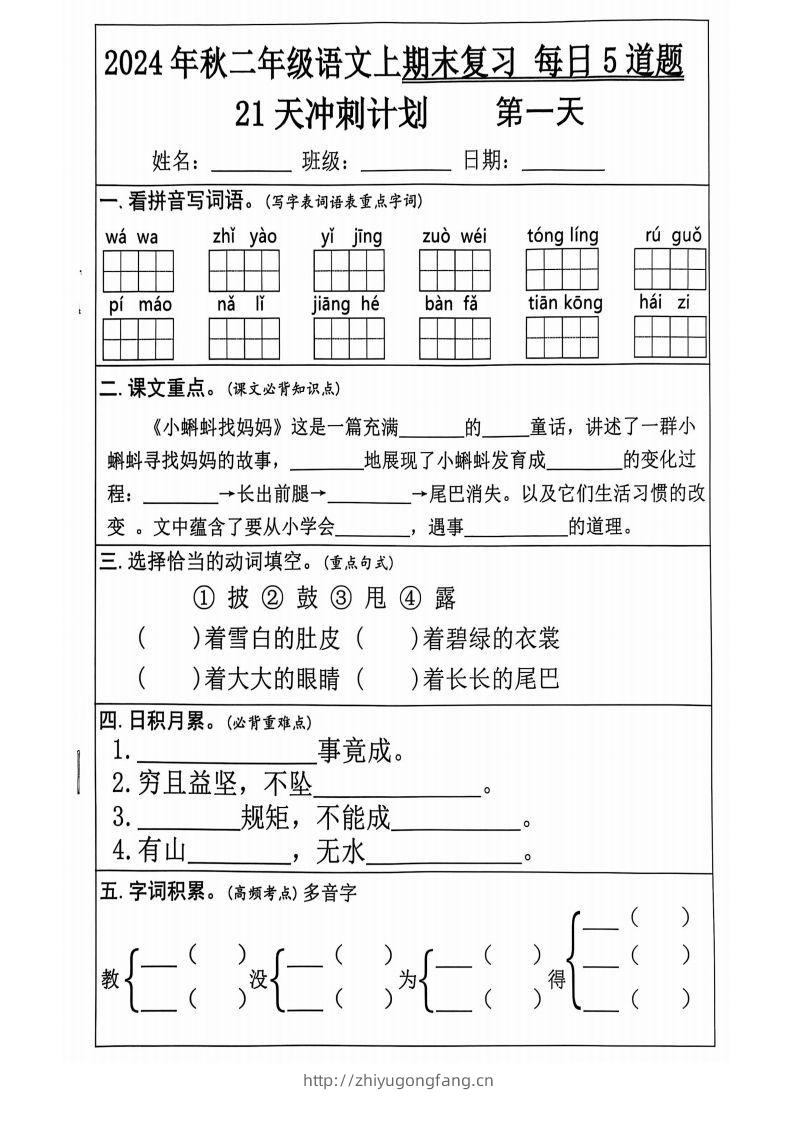 2024 年秋二年级语文上期末复习 每日 5 道题
21 天冲刺计划 第一天
姓名：________ 班级：________ 日期：________
一、看拼音写词语。(写字表词语表重点字词)
wá wa zhǐ yào yǐ jīng zuò wéi tóng líng rú guǒ
pí máo nǎ lǐ jiāng hé bàn fǎ tiān kōng hái zi
二.课文重点。(课文必背知识点)
《小蝌蚪找妈妈》这是一篇充满______的_____童话，讲述了一群小
蝌蚪寻找妈妈的故事，_______地展现了小蝌蚪发育成_______的变化过
程：_______→长出前腿→________→尾巴消失。以及它们生活习惯的改
变 。文中蕴含了要从小学会_______，遇事__________的道理。
三.选择恰当的动词填空。(重点句式)
① 披 ② 鼓 ③ 甩 ④ 露
( )着雪白的肚皮 ( )着碧绿的衣裳
( )着大大的眼睛 ( )着长长的尾巴
四.日积月累。(必背重难点)
1.______________事竟成。
2.穷且益坚，不坠_____________。
3.________规矩，不能成__________。
4.有山________，无水_____________。
五.字词积累。(高频考点) 多音字
教 ___（ ） ___（ ） 没 ___（ ） ___（ ） 为 ___（ ） ___（ ） 得 ___（ ） ___（ ） ___（ ）
http://zhiyugongfang.cn